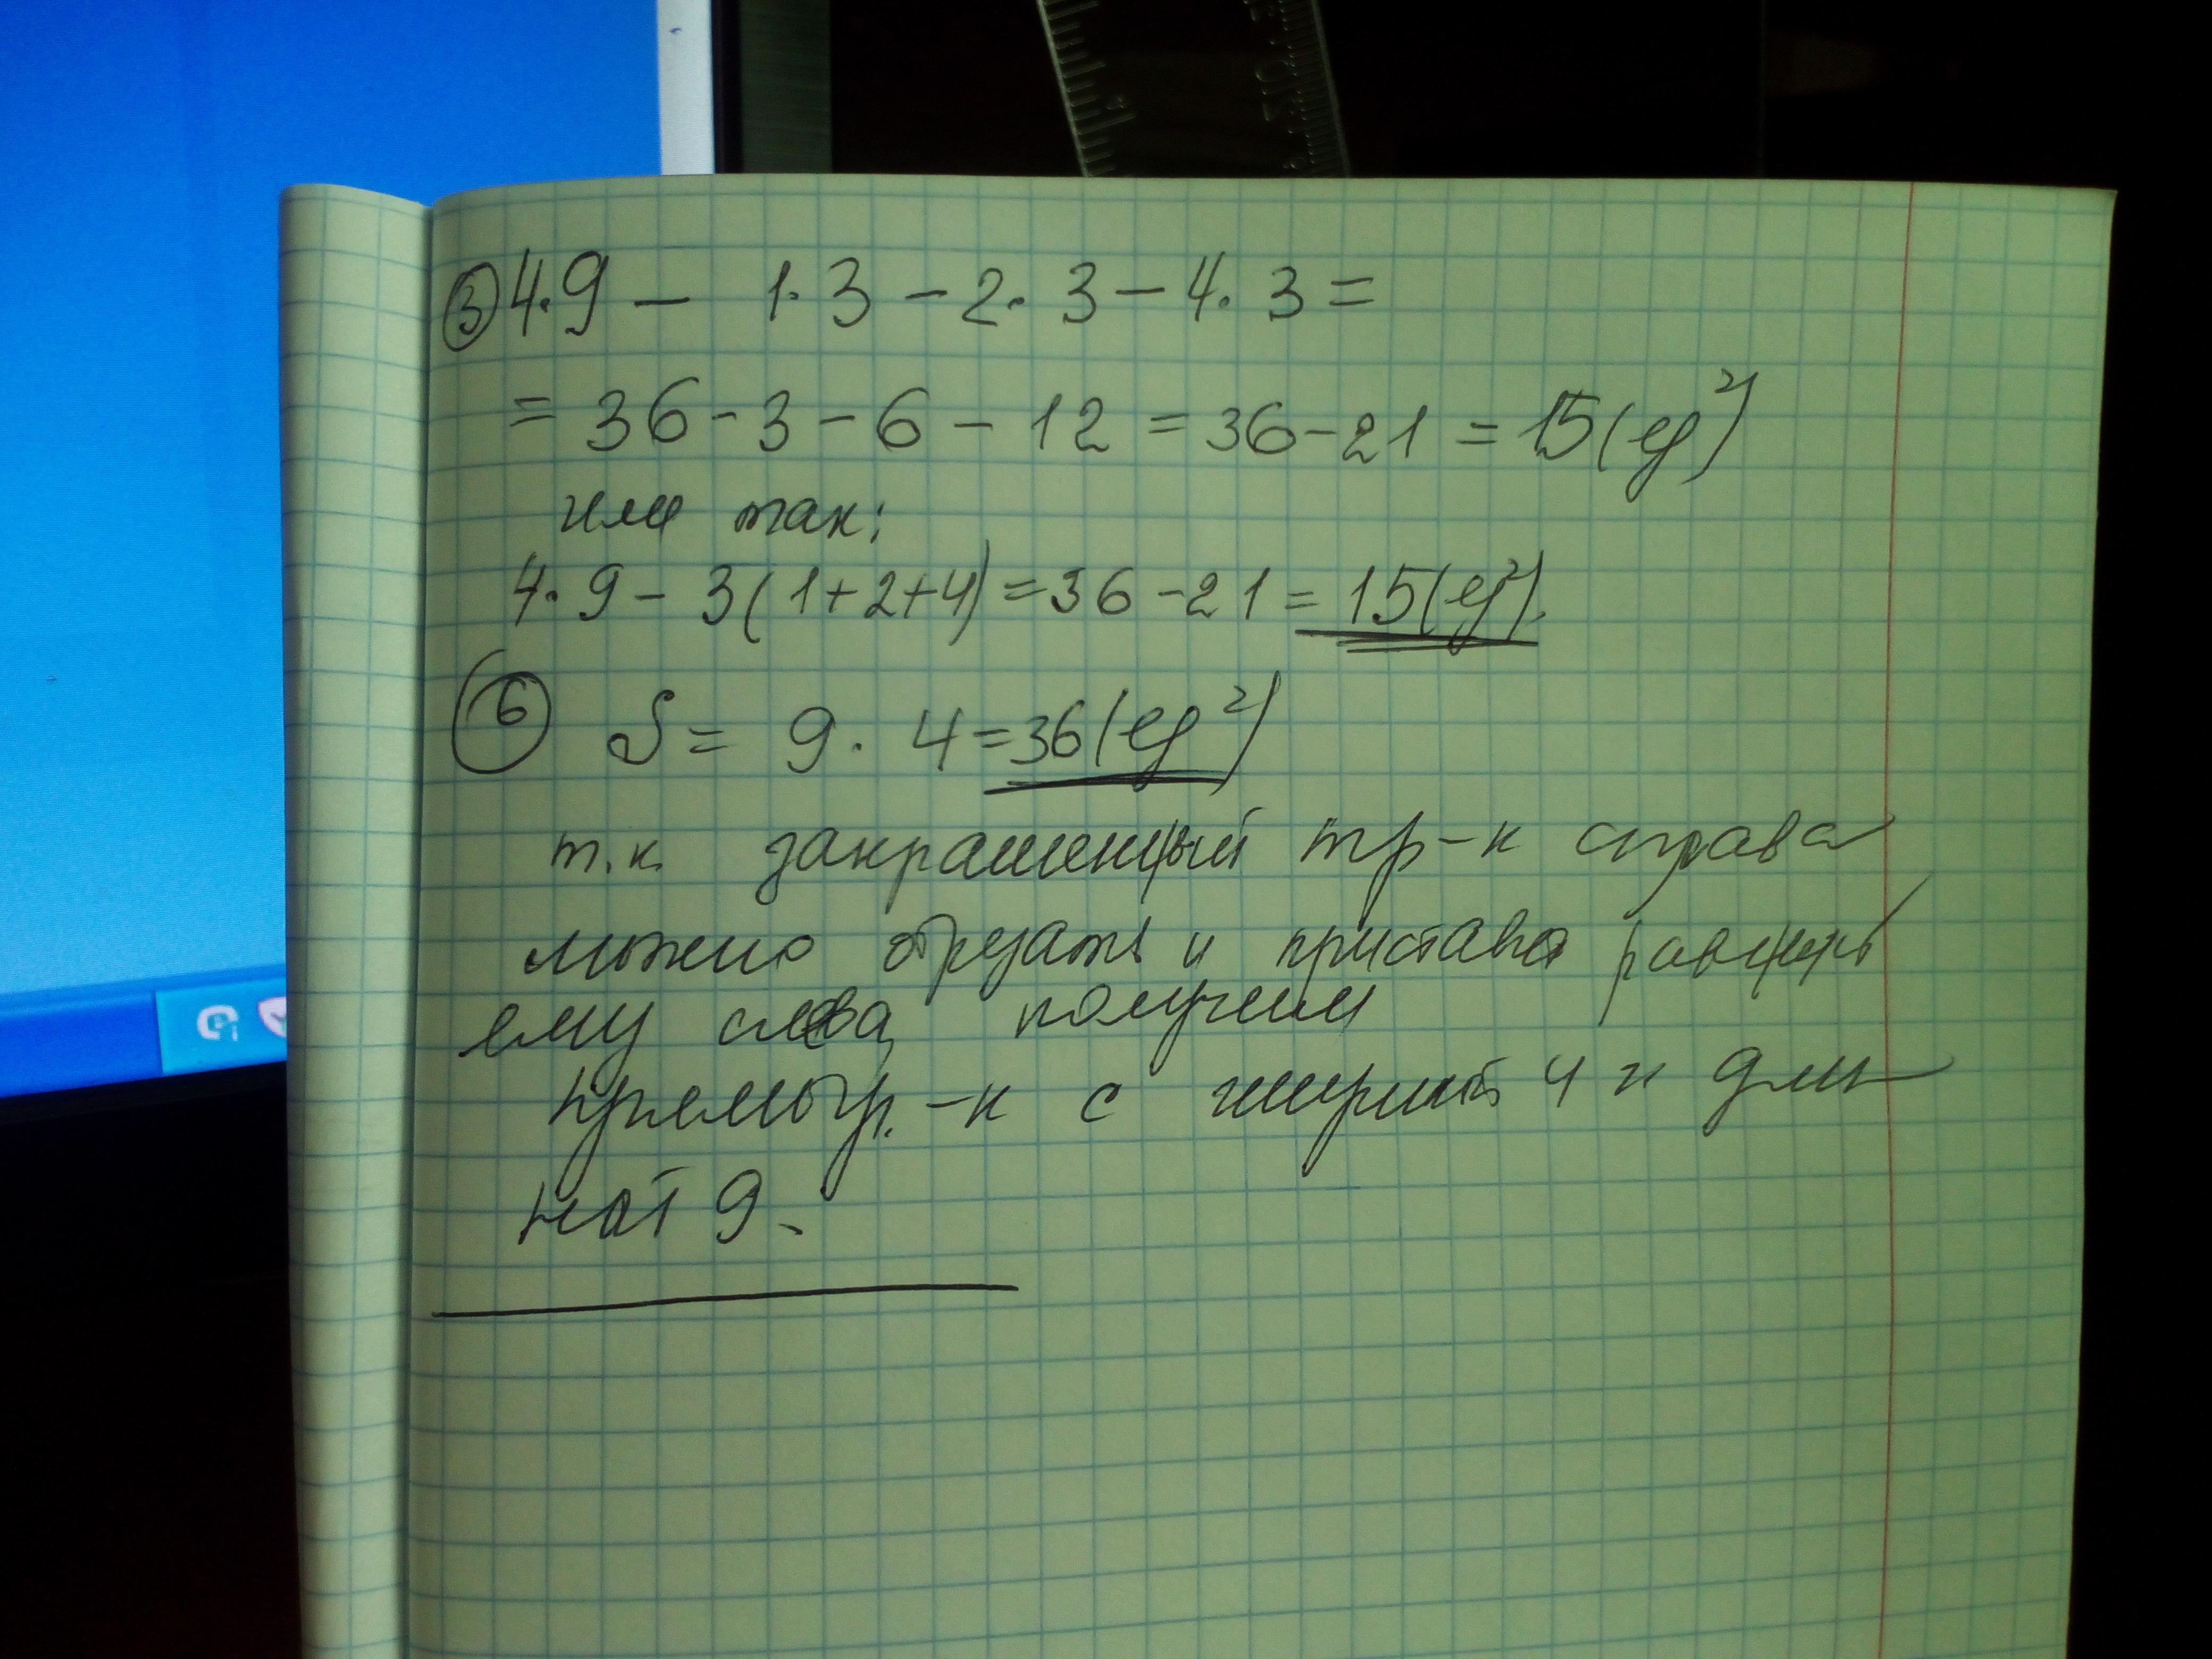 ③ 4·9 – 1·3 – 2·3 – 4·3 =
= 36 - 3 - 6 - 12 = 36 - 21 = 15 (ед²)
или так:
4·9 – 3(1+2+4) = 36 - 21 = 15 (ед²).
⑥ S = 9·4 = 36 (ед²)
т.к. закрашенный тр-к справа
можно отрезать и приставив
ему слева, получим
прямоуг.-к с шириной 4 и дли
ной 9.